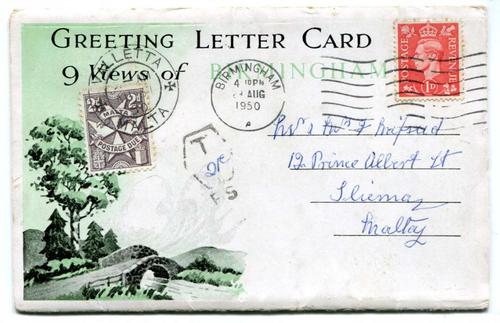 GREETING LETTER CARD
9 Views of BIRMINGHAM
VALLETTA
MALTA
2d 2d
MALTA
POSTAGE DUE
BIRMINGHAM
4 30 PM
AUG
1950
POSTAGE REVENUE
1D
T
Mr & Mrs F
12 Prince Albert St
Sliema
Malta